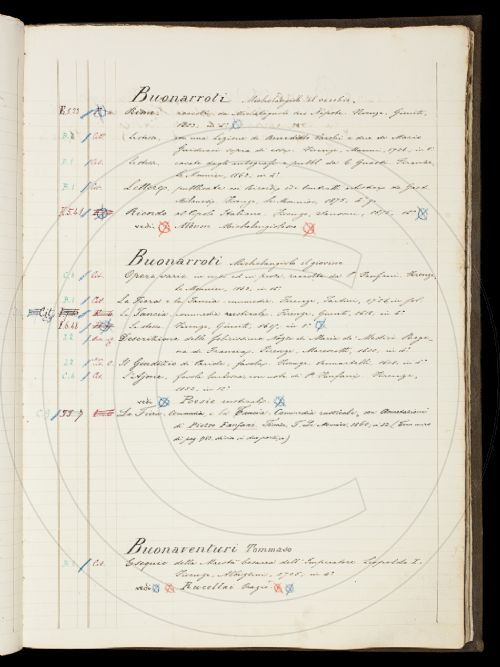 Buonarroti Michelangelo il vecchio.
E.5.23 Rime raccolte da Michelagnolo suo Nipote. Firenze, Giunti,
1623. in 4º
Cit. Le stesse, con una lezione di Benedetto Varchi e due di Mario
Guiducci sopra di esse. Firenze, Manni, 1726, in 8º
Cit. Le stesse, cavate dagli autografi e pubbl. da C. Guasti. Firenze,
Le Monnier, 1863. in 4º
Cit. Lettere, pubblicate coi ricordi ed i contratti artistici da Gaet.
Milanesi. Firenze, Le Monnier, 1875. 4º
Ricordo al Popolo Italiano. Firenze, Sansoni, 1875. 16º
vedi Michelangiolesco
Buonarroti Michelangiolo il giovine
Cit. Opere varie in versi ed in prosa, raccolte da P. Fanfani. Firenze,
Le Monnier, 1863. in 16º
Cit. La Fiera e la Tancia commedie. Firenze, Tartini, 1726 in fol.
Cit. La Tancia commedia rusticale. Firenze, Giunti, 1612. in 8º
1.6.48 La stessa. Firenze, Giunti, in 8º
Descrizione delle felicissime Nozze di Maria de Medici Regi-
na di Francia. Firenze, Marescotti, 1600. in 4º
Il Giudizio di Paride, favola. Firenze, Sermartelli, in 4º
Cit. L'Ajone. favola burlesca con note di P. Fanfani. Firenze,
1852. in 12º
vedi Poesie rusticali
La Fiera Commedia, e la Tancia Commedia rusticale, con Annotazioni
di Pietro Fanfani. Firenze, F. Le Monnier, 1860, in 12
Buonaventuri Tommaso
Cit. Esequie della Maestà Cesarea dell'Imperatore Leopoldo I.
Firenze, 1705, in 4º
vedi Rucellai Orazio